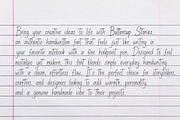 Bring your creative ideas to life with Buttercup Stories,
an authentic handwritten font that feels just like writing in
your favorite notebook with a fine ballpoint pen. Designed to feel
nostalgic yet modern, this font blends simple everyday handwriting
with a clean, effortless flow. It's the perfect choice for storytellers,
crafters, and designers looking to add warmth, personality,
and a genuine handmade vibe to their projects.